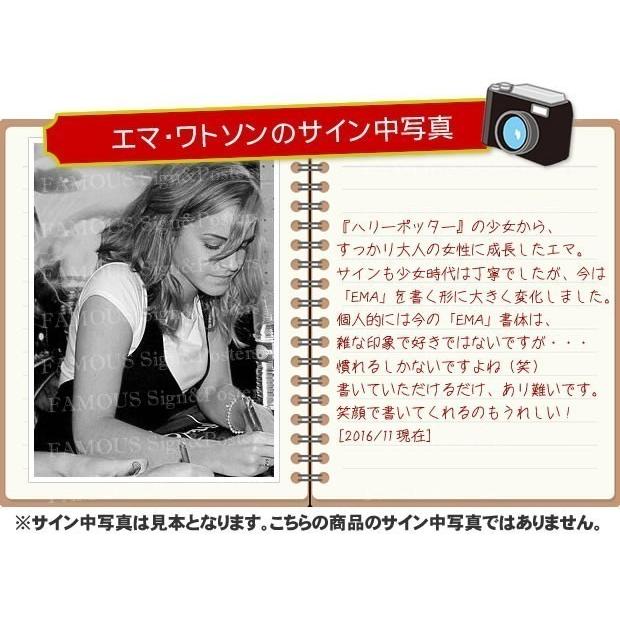 エマ・ワトソンのサイン中写真
FAMOUS Sign&Poster
FAMOUS Sign&Poster
FAMOUS Sign&Poster
FAMOUS Sign&Poster
FAMOUS Sign&Poster
『ハリーポッター』の少女から、
すっかり大人の女性に成長したエマ。
サインも少女時代は丁寧でしたが、今は
「EMA」を書く形に大きく変化しました。
個人的には今の「EMA」書体は、
雑な印象で好きではないですが・・・
慣れるしかないですよね（笑）
書いていただけるだけ、あり難いです。
笑顔で書いてくれるのもうれしい！
[2016/11現在]
※サイン中写真は見本となります。こちらの商品のサイン中写真ではありません。